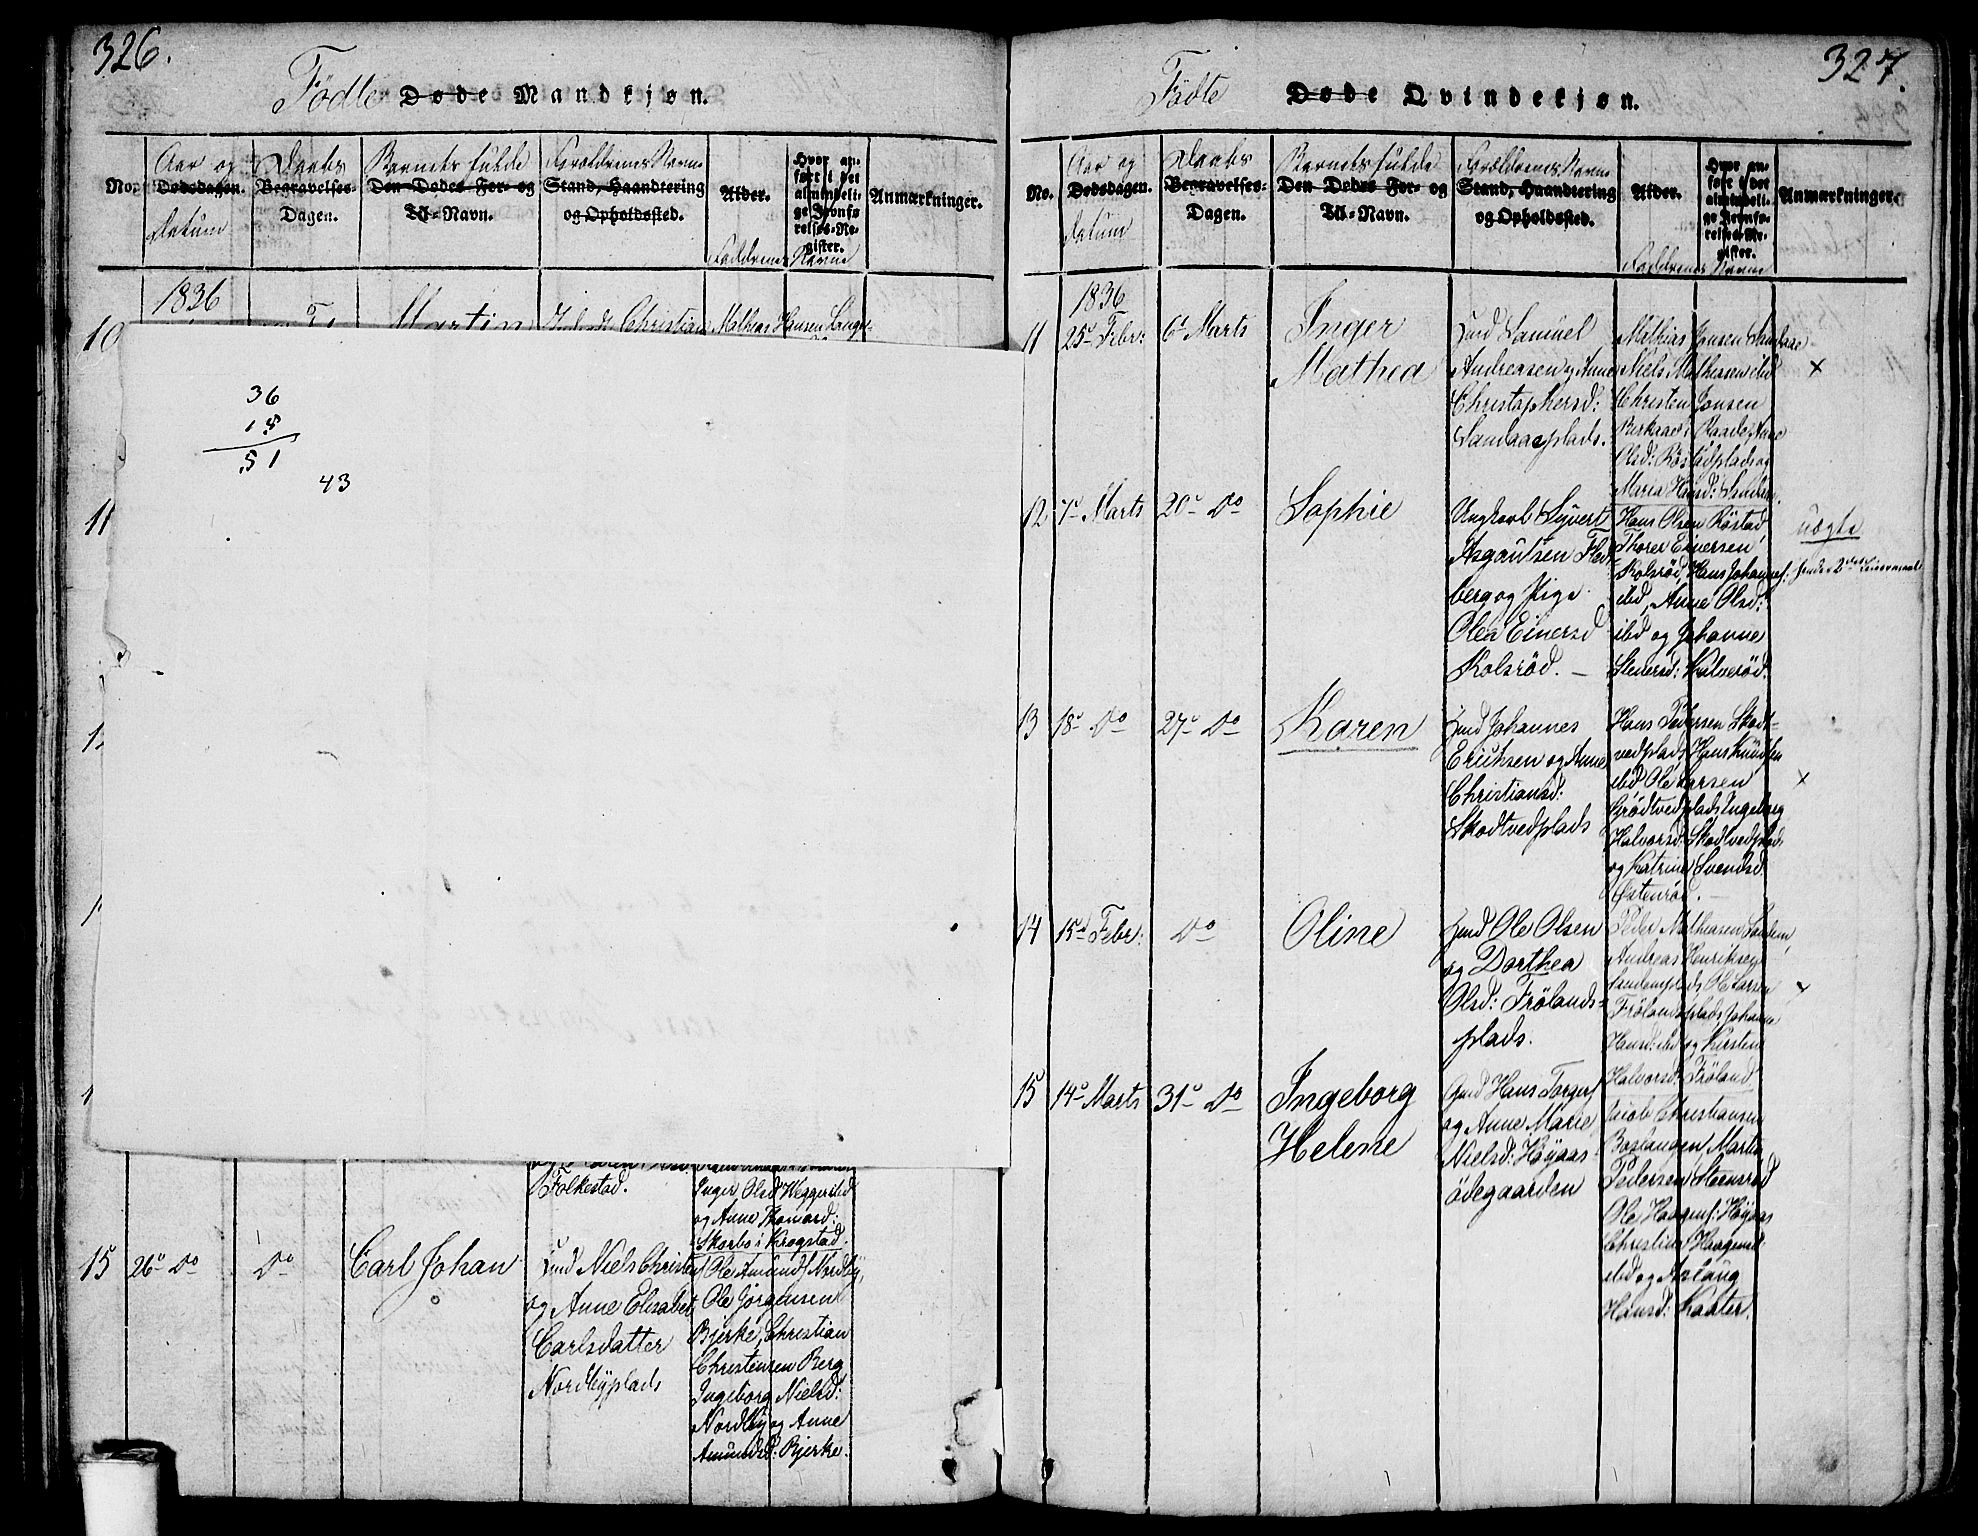 326.
Födte Døde Mandkjøn.
No.
Aar og
Dødsdagen.
Datum
Daabs
Begravelses-
Dagen.
Barnets fulde
Den Dødes For- og
Til-Navn.
Forældrenes Navne
Stand, Haandtering
og Opholdssted.
Alder.
Faddrenes Navne
Hvor an-
ført i det
almindeli-
ge Jevnfø-
relses-Re-
gister.
Anmærkninger.
1836
10
Martin
Christian
Mathias Hansen
36
15
51
43
11
Folkestad.
Inger Olsd Heggersted
og Anne Thomasd:
Skorbø i Krogstad.
15 26de Do
Do
Carl Johan
Hmd Niels Christens
og Anne Elisabet
Carlsdatter
Nordbyplads
Ole Amunds Nordby,
Ole Jörgensen
Bjerke, Christian
Christensen Berg
Ingeborg Nielsd:
Nordby og Anne
Amundsd: Bjerke.
327.
Födte Døde Qvindekjøn.
No.
Aar og
Dødsdagen.
Datum
Daabs
Begravelses-
Dagen.
Barnets fulde
Den Dødes For- og
Til-Navn.
Forældrenes Navne
Stand, Haandtering
og Opholdssted.
Alder.
Faddrenes Navne
Hvor an-
ført i det
almindeli-
ge Jevnfø-
relses-Re-
gister.
Anmærkninger.
1836
11 25de Febr:
6te Marts
Inger
Mathea
Hmd Samuel
Andreasen og Anne
Christophersd:
Sandaaeplads.
Mathias Jonsen Sandaae
Niels Mathiesen ibd
Christen Jonsen
Berkaae i Raade, Anne
Olsd: Röstadplads og
Maria Hansd:
×
12 7de Marts
20de Do
Sophie
Ungkarl Syvert
Asgautsen Fles-
berg og Pige
Olea Einersd
Kolsröd. —
Hans Olsen Röstad
Thorer Einersen
Kolsröd, Hans Johannes:
ibd, Anne Olsd:
ibd og Johanne
Stenersd: Kalneröd.
uægte
hendes 2det Leiermaal
13 18de Do
27de Do
Karen
Hmd Johannes
Erichsen og Anne
Christiansd:
Skodtvedplads
Hans Pedersen Skodt-
vedplads, Hans Knudsen
ibd Ole Larsen
Grödtvedplads, Ingeborg
Halvorsd: Skodtvedplads
og Katrine Svendsd
Østenröd. —
×
14 15de Febr:
Do
Oline
Hmd Ole Olsen
og Dorthea
Olsd: Frölands-
plads.
Peder Mathiesen Sandem,
Andreas Henriksen
Sandemplads, Ole Larsen
Frölandsplads, Johanne
Hansd: ibd og Kirstene
Halvorsd: Fröland.
×
15 14de Marts
31te Do
Ingeborg
Helene
Gmd Hans Torgers
og Anne Marie
Nielsd: Höyaas
ödegaarden
Jacob Christiansen
Boslangen, Martin
Pedersen Steensröd
Ole Haagens: Höyaas
Christine Haagensd
ibd og Aslaug
Hansd: Kaater.